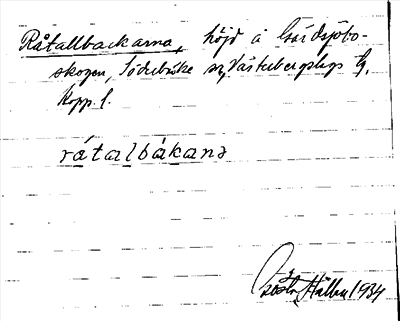 Råtallbackarna, höjd å Gårdsjöbo-
skogen, Söderbärke sn, Västerbergslags tg,
Kopp. l.
rátalbákana
Gösta Hållen 1934